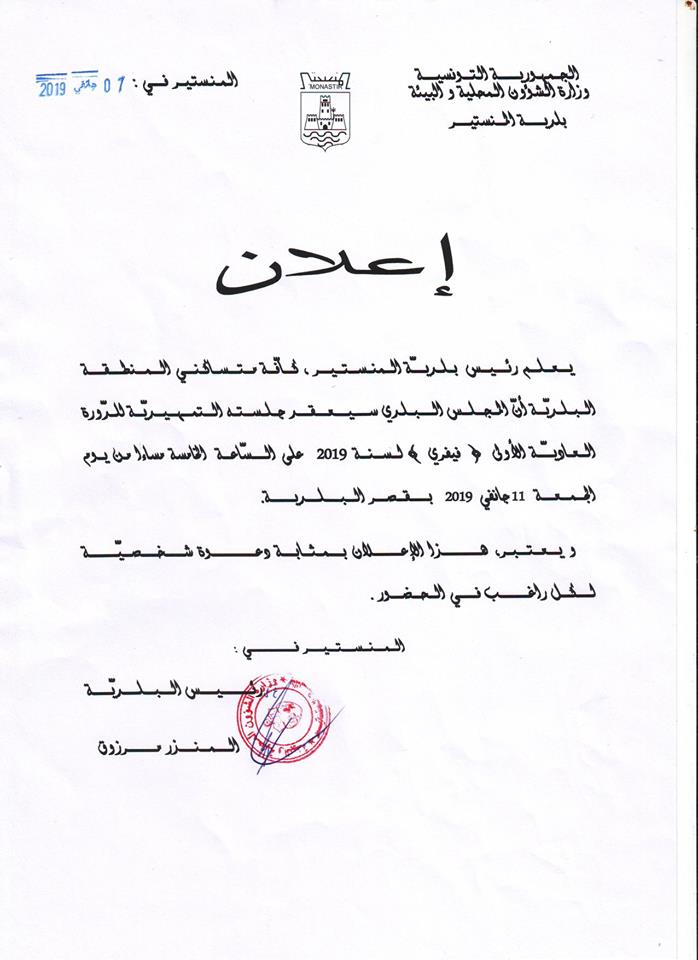 الجمهورية التونسية
وزارة الشؤون المحلية و البيئة
بلدية المنستير
MONASTIR
المنستير في : 07 جانفي 2019
إعلان
يعلم رئيس بلديّة المنستير، كافّة متساكني المنطقة
البلديّة أنّ المجلس البلدي سيعقد جلسته التمهيديّة للدّورة
العاديّة الأولى ﴿ فيفري ﴾ لسنة 2019 على السّاعة الخامسة مساءا من يوم
الجمعة 11 جانفي 2019 بقصر البلدية.
و يعتبر، هذا الإعلان بمثابة دعوة شخصيّة
لكل راغب في الحضور.
المنستير في :
رئيس البلديّة
المنذر مرزوق